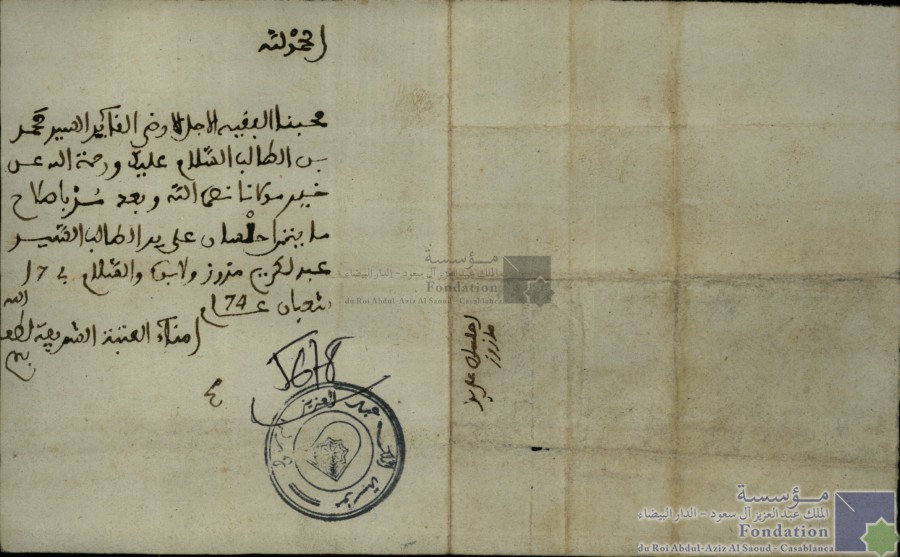 الحمد لله
محبنا الفقيه الاجل الارضى القايد السيد محمد
بن الطالب السلام عليك ورحمة الله عن
خير مولانا نصره الله وبعد
ما على يد الطالب السيد
عبد الكريم ولابد والسلام في 17
شعبان عام 174
امناء العتبة الشريفة الله
5678
عبد العزيز
مؤسسة
مؤسسة
الملك عبد العزيز آل سعود - الدار البيضاء
Fondation
du Roi Abdul-Aziz Al Saoud - Casablanca
مؤسسة
الملك عبد العزيز آل سعود - الدار البيضاء
Fondation
du Roi Abdul-Aziz Al Saoud - Casablanca